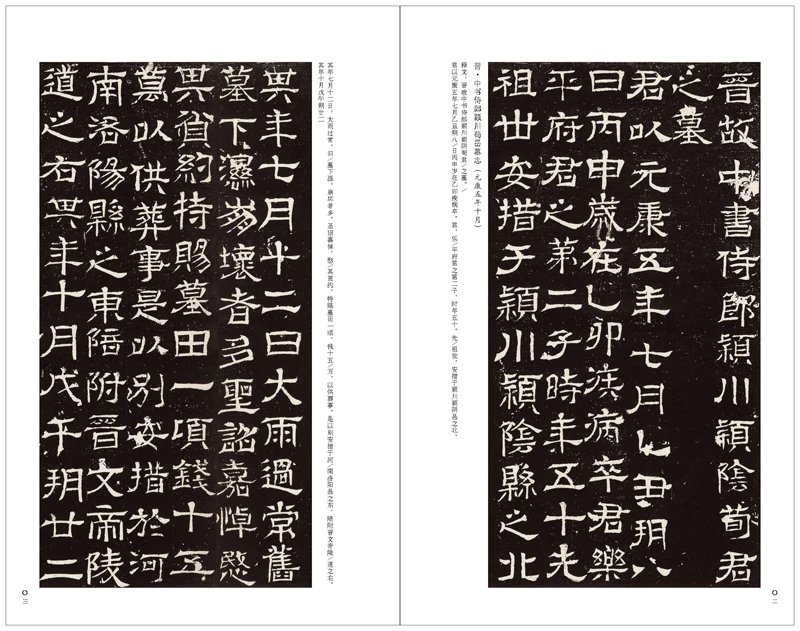 晋·中书侍郎颍川荀岳墓志（元康五年十月）
释文：晋故中书侍郎颍川颍阴荀君／之墓。／
君以元康五年七月乙丑朔八／日丙申岁在乙卯疾病卒。君，乐／平府君之第二子，时年五十。先／祖世，安措于颍川颍阴县之北，
晉故中書侍郎潁川潁陰荀君
之墓
君以元康五年七月乙丑朔八
日丙申歲在乙卯疾病卒君樂
平府君之第二子時年五十先
祖世安措于潁川潁陰縣之北
〇二
其年七月十二日，大雨过常，旧／墓下湿，崩坏者多。圣诏嘉悼，愍／其贫约，特赐墓田一顷，钱十五／万，以供葬事。是以别安措于河／南洛阳县之东，陪附晋文帝陵／道之右。
其年十月戊午朔廿二
其年七月十二日大雨過常舊
墓下濕崩壞者多聖詔嘉悼愍
其貧約特賜墓田一頃錢十五
萬以供葬事是以別安措於河
南洛陽縣之東陪附晉文帝陵
道之右其年十月戊午朔廿二
〇三